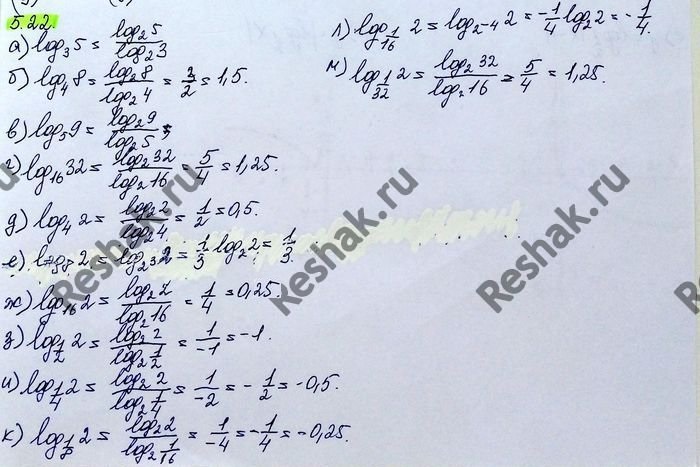 5.22.
а) log₃5 = log₂5/log₂3
б) log₄8 = log₂8/log₂4 = 3/2 = 1,5.
в) log₅9 = log₂9/log₂5;
г) log₁₆32 = log₂32/log₂16 = 5/4 = 1,25.
д) log₄2 = log₂2/log₂4 = 1/2 = 0,5.
е) log₈2 = log₂³2 = 1/3 log₂2 = 1/3.
ж) log₁₆2 = log₂2/log₂16 = 1/4 = 0,25.
з) log_{1/2}2 = log₂2/log₂(1/2) = 1/-1 = -1.
и) log_{1/4}2 = log₂2/log₂(1/4) = 1/-2 = -1/2 = -0,5.
к) log_{1/8}2 = log₂2/log₂(1/16) = 1/-4 = -1/4 = -0,25.
л) log_{1/16}2 = log₂-4 2 = -1/4 log₂2 = -1/4.
м) log_{1/32}2 = log₂32/log₂16 = 5/4 = 1,25.
Reshak.ru
Reshak.ru
Reshak.ru
Reshak.ru